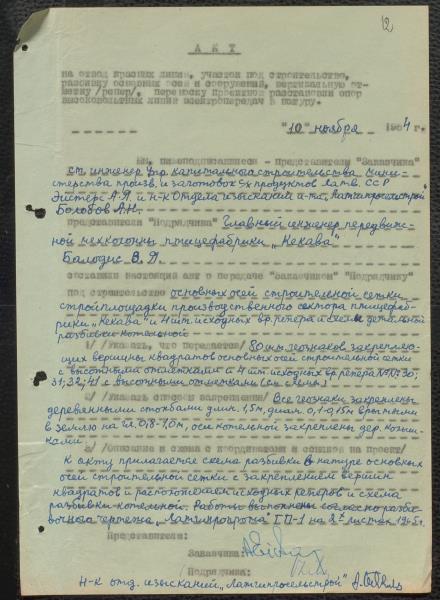 12
АКТ
на отвод красных линий, участка под строительство,
разбивку основных осей и сооружений, вертикальную от-
метку /репер/, переноску проектной расстановки опор
высоковольтных линий электропередач в натуру.
"10" ноября 1964
Мы, нижеподписавшиеся - представители "Заказчика"
ст. инженер Упр. капитального строительства Мини-
стерства произв. и заготовок с/х продуктов Латв. ССР
Эйтерс А.Я. и н-к Отдела изысканий и-та "Латгипросельстрой"
Болобов А.Н.
представители "Подрядчика" Главный инженер передвиж-
ной мехколонны птицефабрики "Кекава"
Балодис В.Я.
составили настоящий акт о передаче "Заказчиком" "Подрядчику"
под строительство основных осей строительной сетки
стройплощадки производственного сектора птицефаб-
рики "Кекава" и 4 шт. исходных вр. репера и схемы детальной
разбивки котельной
1/ /Указать, что передается/ 80 шт. геознаков закрепляю-
щих вершины квадратов основных осей строительной сетки
с высотными отметками и 4 шт. исходных вр. репера №№ 30;
31; 32; 41 с высотными отметками (см. схемы)
2/ /Указать способ закрепления/ Все геознаки закреплены
деревянными столбами длин. 1,5м, диам. 0,1-0,15м врытыми
в землю на гл. 0,8-1,0м, оси котельной закреплены дер. колыш-
ками.
3/ /Описание и схема с координатами и ссылкой на проект/
К акту прилагается схема разбивки в натуре основных
осей строительной сетки с закреплением вершин
квадратов и расположением исходных реперов и схема
разбивки котельной. Работы выполнены согласно разби-
вочного чертежа "Латгипропрома" ГП-1 на 8 листах
Представители:
Заказчика:
Подрядчика:
Н-к отд. изысканий "Латгипросельстрой"